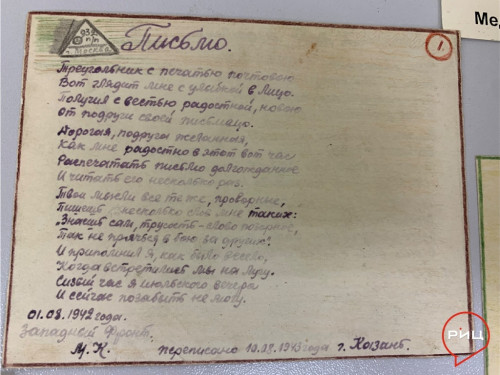 Ме
93
п/п
г. Москва
Письмо.
1
Треугольник с печатью почтовою
Вот глядит мне с улыбкой в лицо.
Получил с вестью радостной, новою
От подруги своей письмецо.
Дорогая, подруга желанная,
Как мне радостно в этот вот час
Распечатать письмо долгожданное
И читать его несколько раз.
Твои мысли все те же, проворные,
Пишешь несколько слов мне таких:
Знаешь сам, трусость - слово позорное,
Так не прячься в бою за других!
И припомнил я, как было весело,
Когда встретились мы на лугу.
час я июльского вечера
И сейчас позабыть не могу.
01.08.1942 года.
Западный фронт.
М. К. переписано 10.02.1943 года г. Казань.
РИЦ